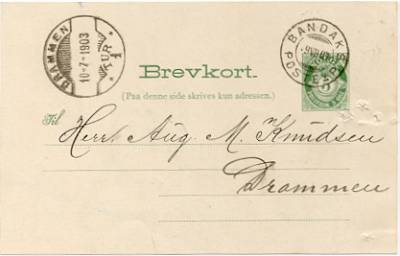 DRAMMEN
10-7-1903
TUR 1
BANDAK
Brevkort.
(Paa denne side skrives kun adressen.)
Til Herr Aug. M. Knudsen
Drammen